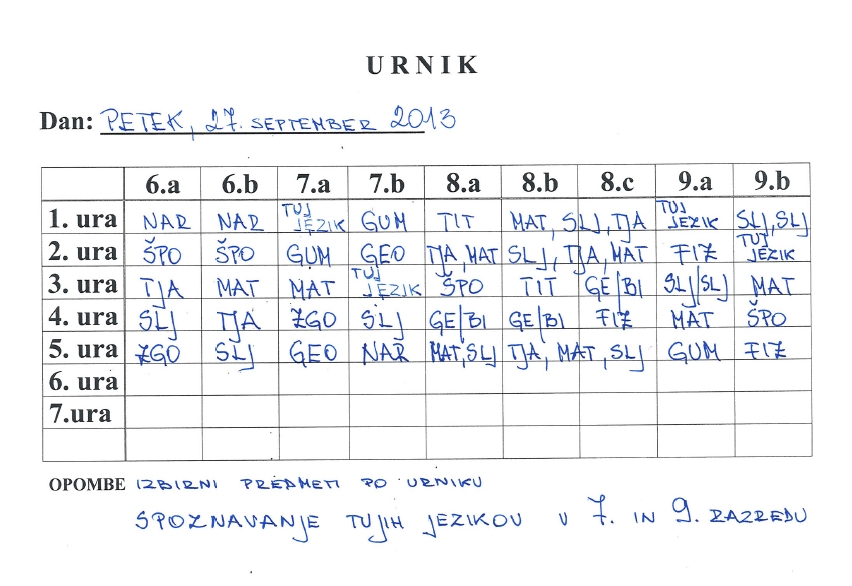 URNIK
Dan: PETEK, 27. SEPTEMBER 2013
6.a 6.b 7.a 7.b 8.a 8.b 8.c 9.a 9.b
1. ura NAR NAR TUJ JEZIK GUM TIT MAT, SLJ, TJA TUJ JEZIK SLJ, SLJ
2. ura ŠPO ŠPO GUM GEO TJA, MAT SLJ, TJA, MAT FIZ TUJ JEZIK
3. ura TJA MAT MAT TUJ JEZIK ŠPO TIT GE/BI SLJ/SLJ MAT
4. ura SLJ TJA ZGO SLJ GE/BI GE/BI FIZ MAT ŠPO
5. ura ZGO SLJ GEO NAR MAT, SLJ TJA, MAT, SLJ GUM FIZ
6. ura
7.ura
OPOMBE IZBIRNI PREDMETI PO URNIKU
SPOZNAVANJE TUJIH JEZIKOV V 7. IN 9. RAZREDU